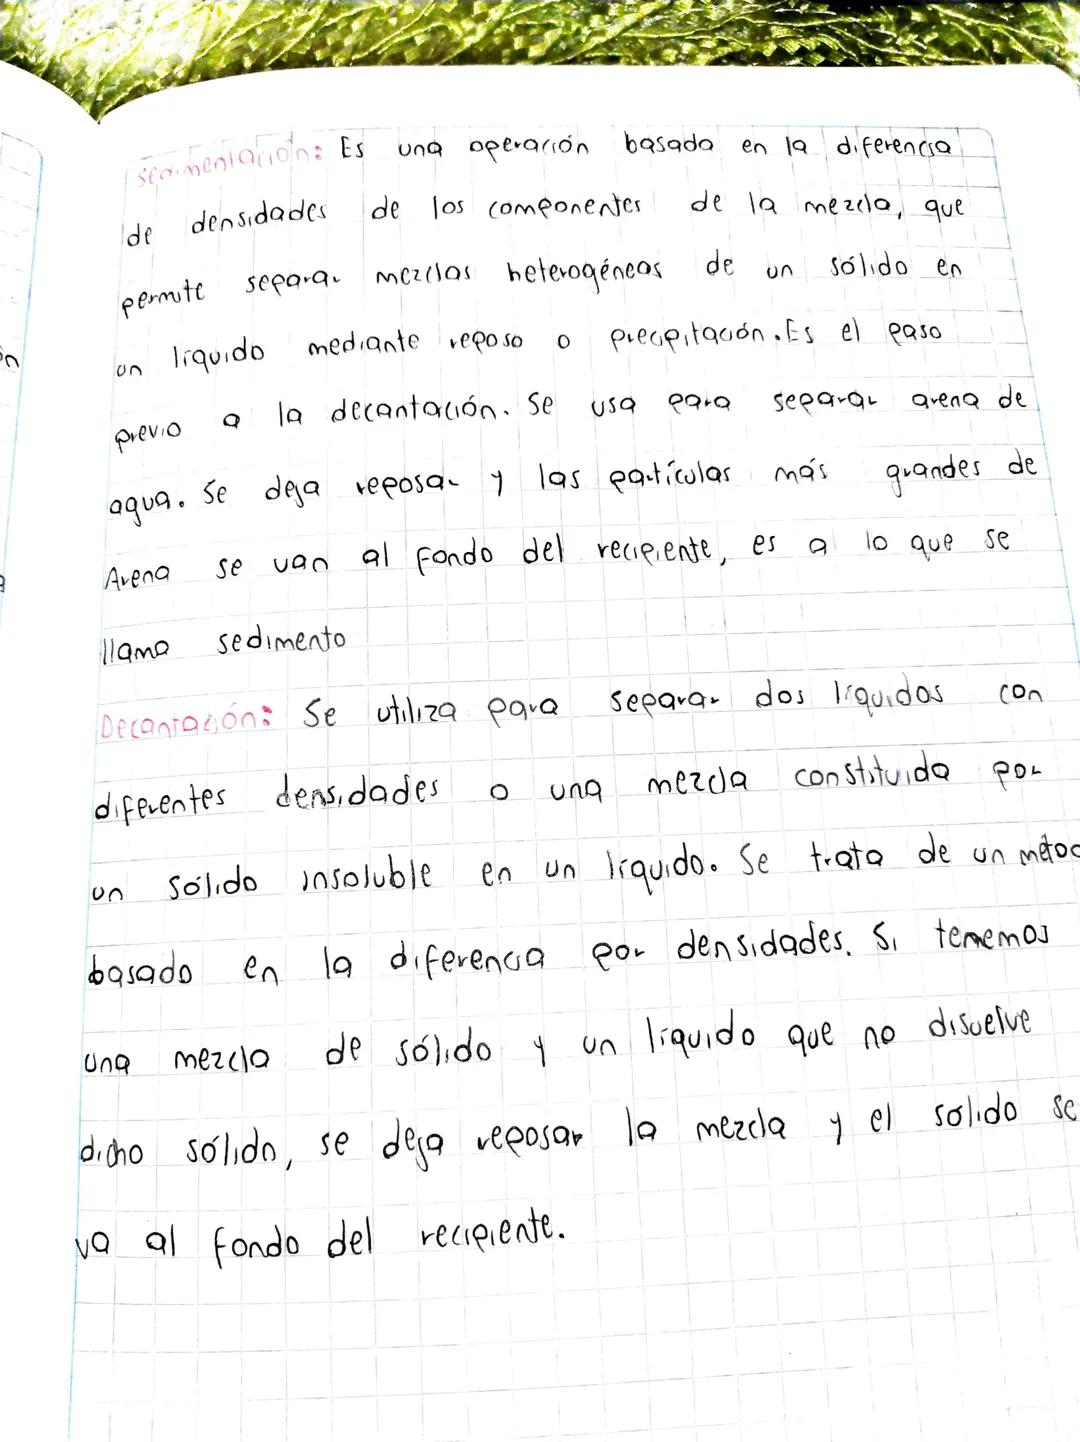 Sedimentación: Es una operación basada en la diferencia
de densidades de los componentes de la mezcla, que
permite separar mezclas heterogéneas de un sólido en
un líquido mediante reposo o precipitación. Es el paso
previo a la decantación. Se usa para separar arena de
agua. Se deja reposar y las partículas más grandes de
Arena se van al fondo del recipiente, es a lo que se
llama sedimento
Decantación: Se utiliza para separar dos líquidos con
diferentes densidades o una mezcla constituida por
un sólido insoluble en un líquido. Se trata de un métod
basado en la diferencia por densidades. Si tenemos
una mezcla de sólido y un líquido que no disuelve
dicho sólido, se deja reposar la mezcla y el sólido se
va al fondo del recipiente.